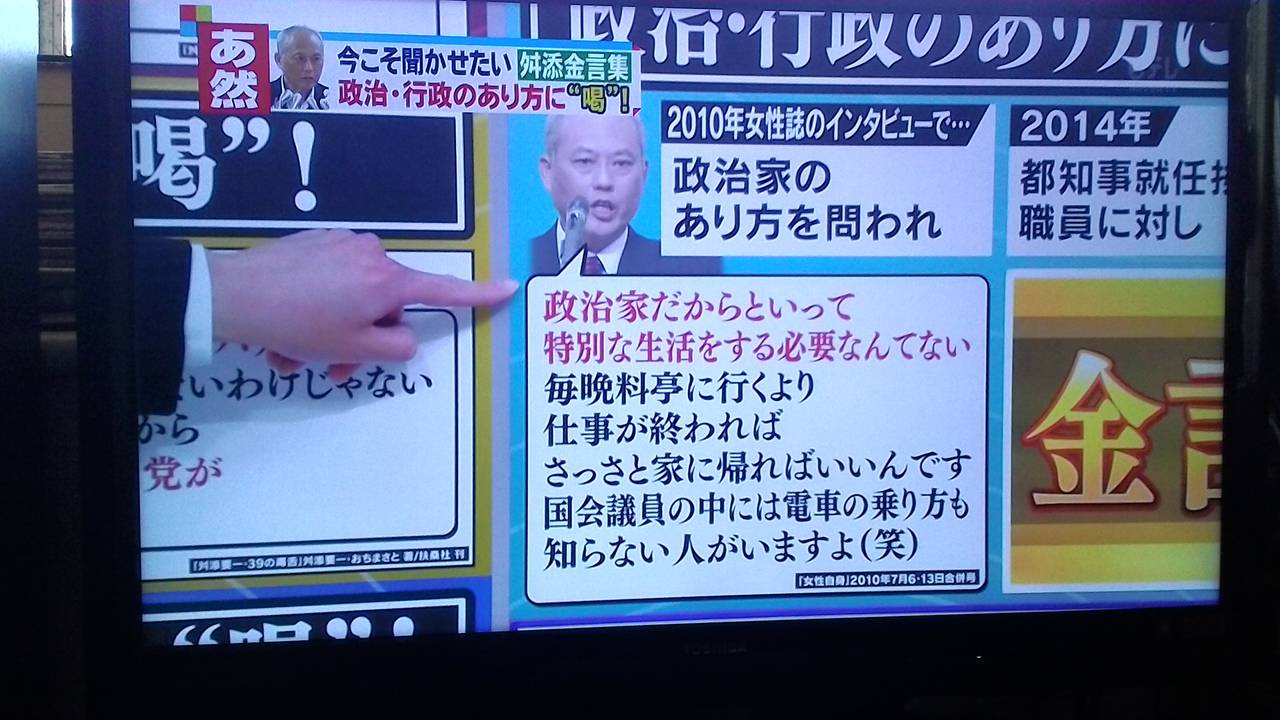 あ然
今こそ聞かせたい 舛添金言集
政治・行政のあり方に“喝”!
政治・行政のあり方に
喝”!
2010年女性誌のインタビューで…
政治家の
あり方を問われ
2014年
都知事就任挨
職員に対し
政治家だからといって
特別な生活をする必要なんてない
毎晩料亭に行くより
仕事が終われば
さっさと家に帰ればいいんです
国会議員の中には電車の乗り方も
知らない人がいますよ(笑)
「女性自身」2010年7月6・13日合併号
いわけじゃない
から
党が
「舛添要一・39の毒舌」舛添要一・おちまさと 著/扶桑社 刊
金言
“喝”!
TOSHIBA